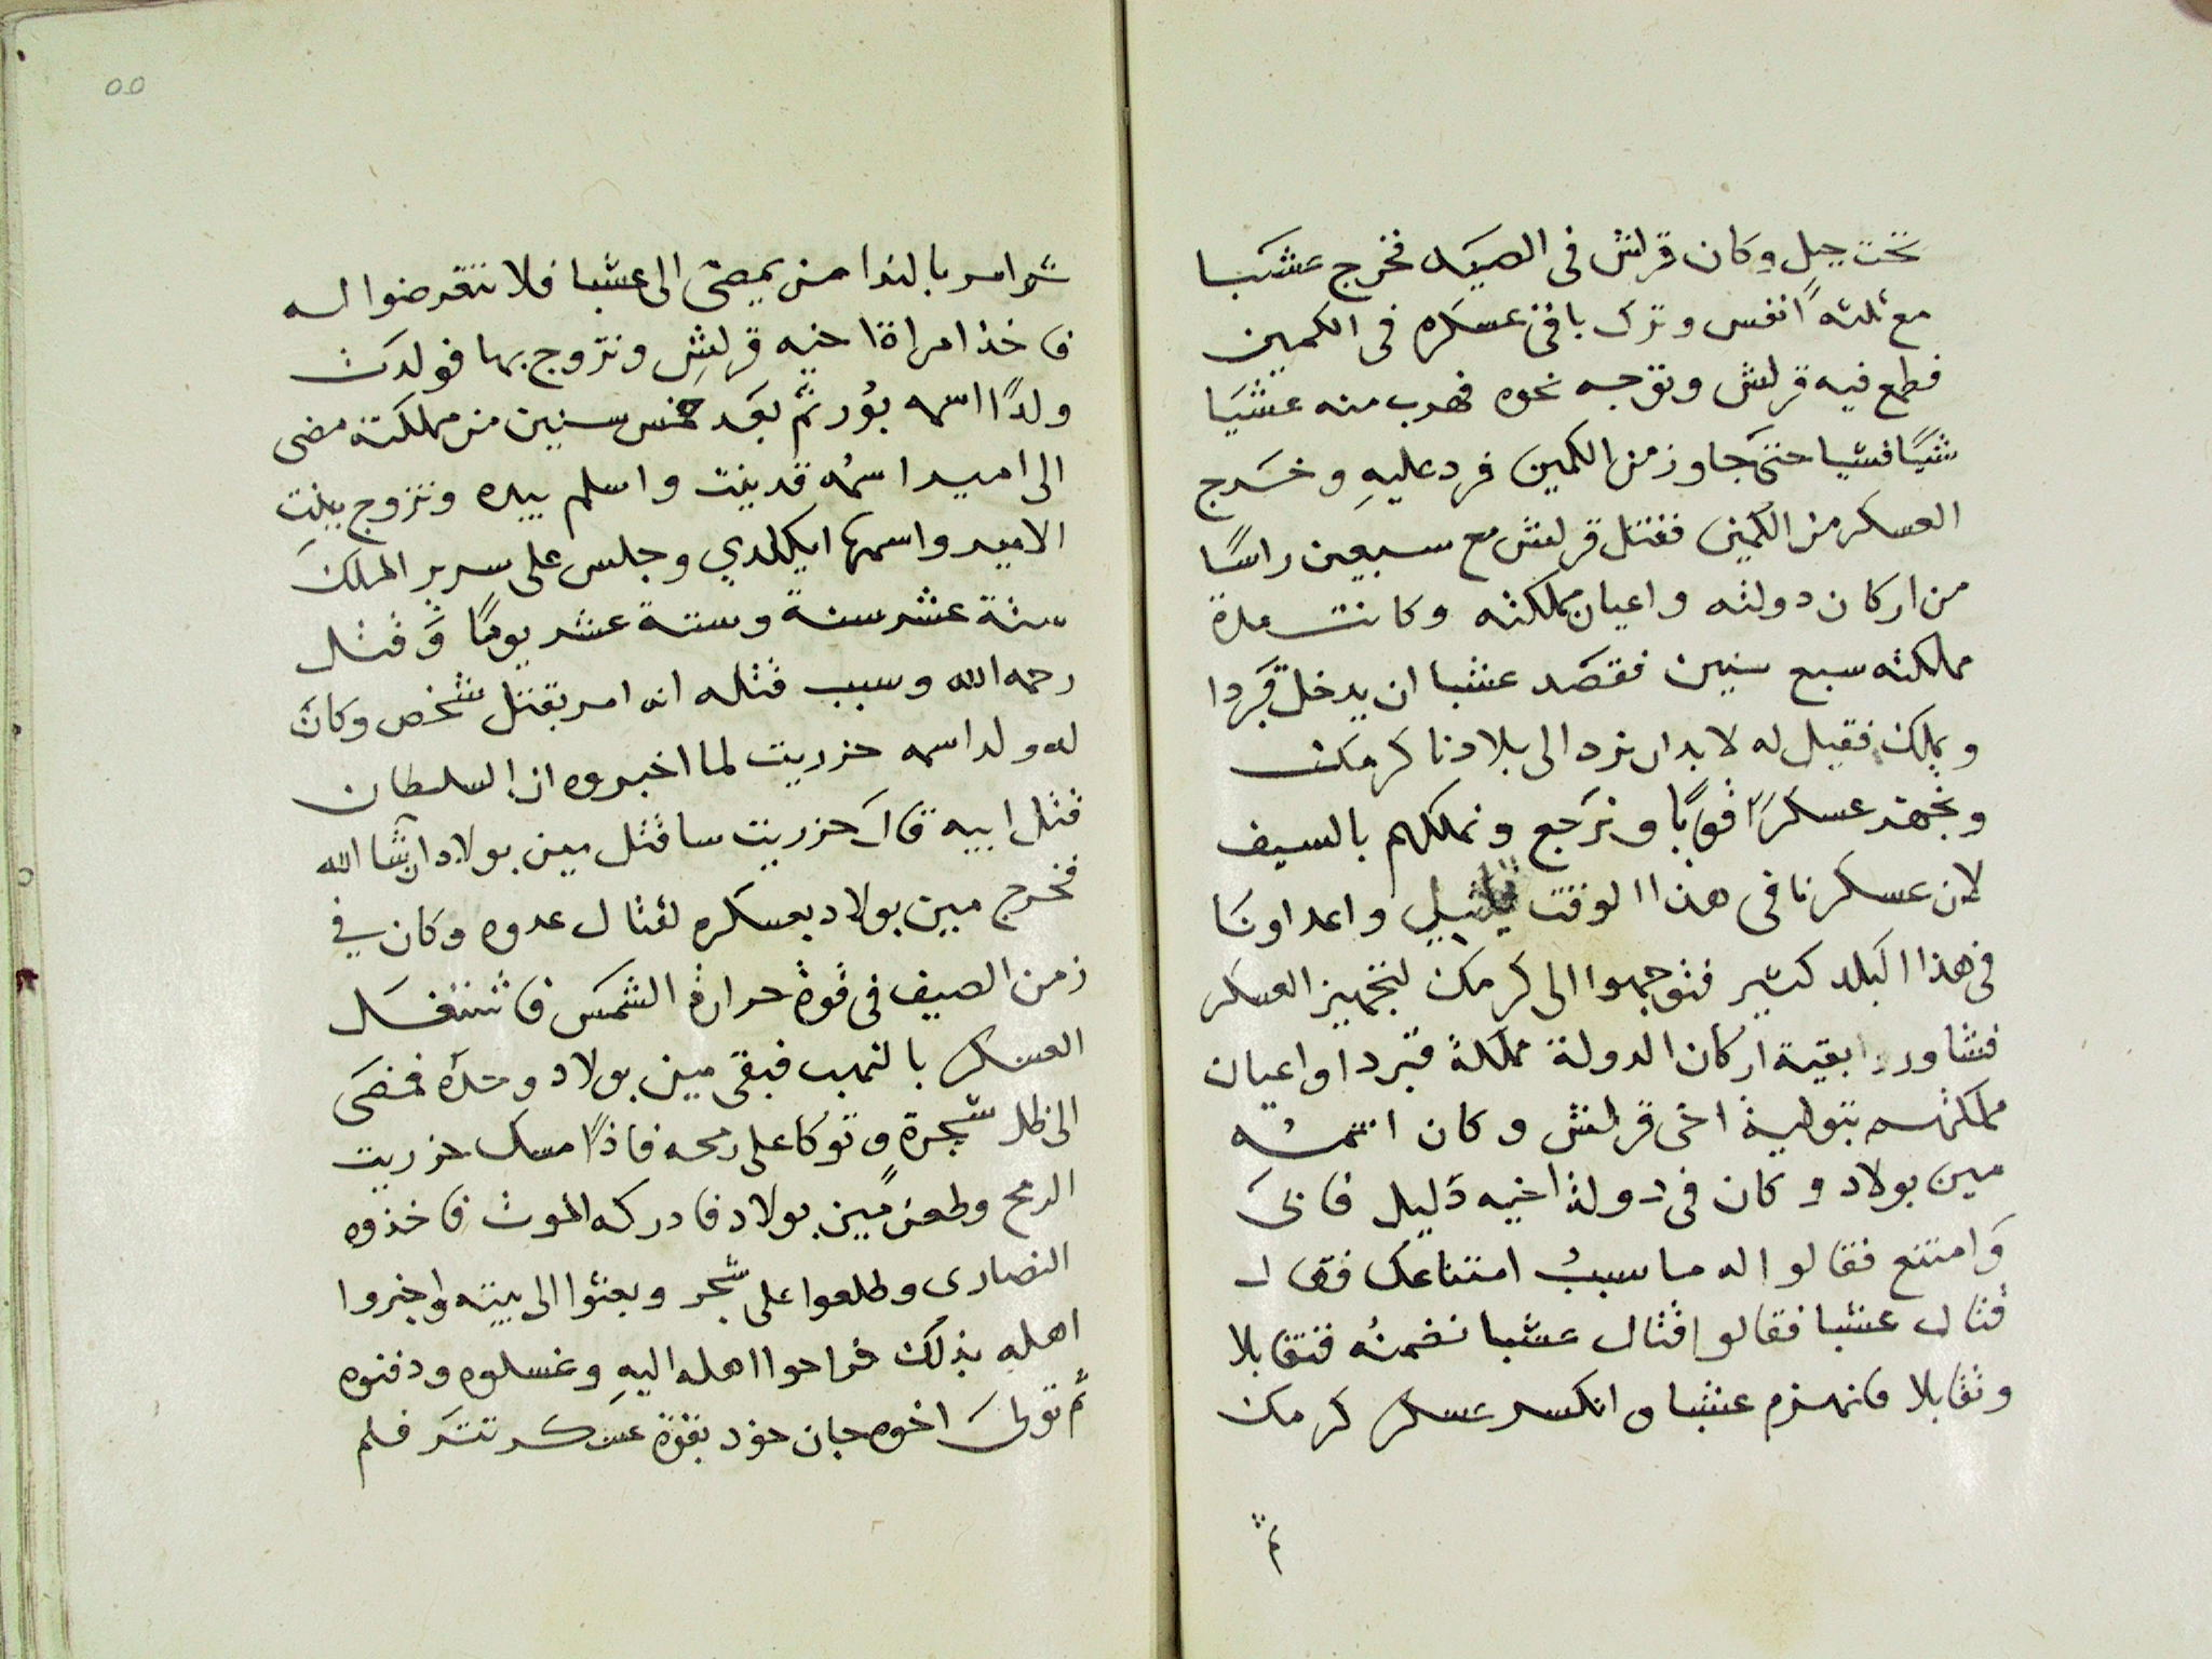 تحت جبل وكان قرلش فى الصيد فخرج عشبا
مع ثلثة انفس وترك باقى عسكره فى الكمين
فطمع فيه قرلش وتوجه نحوه فهرب منه عشبا
شيًا فشيا حتى جاوز من الكمين فرد عليهِ وخرج
العسكر من الكمين فقتل قرلش مع سبعين راسًا
من اركان دولته واعيان مملكته وكانت مدة
مملكته سبع سنين فقصد عشبا ان يدخل قبردا
ويملك فقيل له لا بد ان نرد الى بلادنا كرمك
ونجهز عسكرًا قويًا ونرجع ونملكهم بالسيف
لان عسكرنا فى هذا الوقت قليل واعداونا
فى هذا البلد كثير فتوجهوا الى كرمك لتجهيز العسكر
فشاوروا بقية اركان الدولة مملكة قبردا واعيان
مملكتهم بتولية اخى قرلش وكان اسمه
مين بولاد وكان فى دولة اخيه ذليل فابى
وامتنع فقالوا له ما سببُ امتناعك فقال
قتال عشبا فقالوا قتال عشبا نضمنُه فتقابلا
وتقابلا فانهزم عشبا وانكسر عسكر كرمك
ثم
ثم امر بالندا من يمضى الى عشبا فلا تتعرضوا له
فاخذ امراة اخيه قرلش وتزوج بها فولدت
ولدًا اسمه بوُر ثم بعد خمس سنين من مملكته مضى
الى امير اسمُه قدينت واسلم بيده وتزوج ببنت
الامير واسمها ايكلدي وجلس على سرير الملك
ستة عشر سنة وستة عشر يومًا وقتل
رحمه الله وسبب قتله انه امر بقتل شخص وكان
له ولد اسمه حزريت لما اخبروه ان السلطان
قتل ابيه قال حزريت ساقتل مين بولاد ان شا الله
فخرج مين بولاد بعسكره لقتال عدوه وكان في
زمن الصيف فى قوة حرارة الشمس فاشتغل
العسكر بالنهب فبقى مين بولاد وحده فمضى
الى ظل شجرة وتوكا على رمحه فاذًا مسك حزريت
الرمح وطعن مين بولاد فادركه الموت فاخذوه
النصارى وطلعوا على شجر وبعثوا الى بيته واخبروا
اهله بذلك فراحوا اهله اليهِ وغسلوه ودفنوه
ثم تولى اخوه جان حود بقوة عسكر تتر فلم